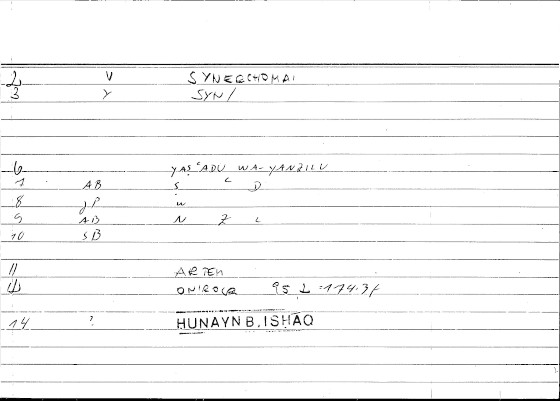 2 V SYNEECHOMAI
3 Y SYN/
6 YAṢʿADU WA-YANZILU
7 AB Ṣ ʿ D
8 JP W
9 AB N Z L
10 SB
11 ARTEM
ONIROCR 95, 2 = 174.3f
14 ? HUNAYN B. ISHAQ